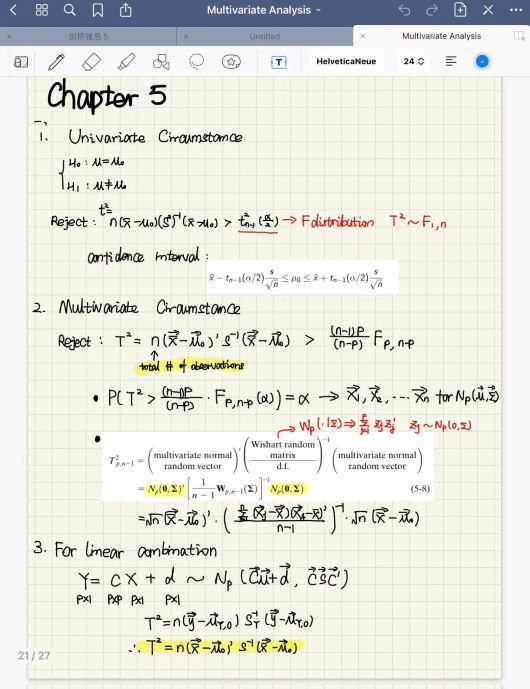 Multivariate Analysis
剑桥雅思5
Untitled
Multivariate Analysis
HelveticaNeue
24
Chapter 5
1. Univariate Circumstance
{ H₀ : μ = μ₀
H₁ : μ ≠ μ₀
t² =
Reject : n(x̄-μ₀)(S²)⁻¹(x̄-μ₀) > t²ₙ₋₁(α/2) → F distribution T² ~ F₁,ₙ
confidence interval :
x̄ − tₙ₋₁(α/2) s/√n ≤ μ₀ ≤ x̄ + tₙ₋₁(α/2) s/√n
2. Multivariate Circumstance
Reject : T² = n(x̄-μ₀)' S⁻¹(x̄-μ₀) > (n-1)p/(n-p) F p, n-p
↑
total # of observations
• P(T² > (n-1)p/(n-p) · F p,n-p (α)) = α → X₁, X₂, ... Xₙ for Np(μ, Σ)
Wp(·|Σ) ⇒ Σ zj zj' zj ~ Np(0,Σ)
T²p,n−1 = (multivariate normal random vector)' (Wishart random matrix / d.f.)⁻¹ (multivariate normal random vector)
= Np(0, Σ)' [1/(n − 1) Wp,n−1(Σ)]⁻¹ Np(0, Σ) (5-8)
= √n (x̄-μ₀)' · (Σ (xj-x̄)(xj-x̄)' / n-1)⁻¹ · √n (x̄-μ₀)
3. For linear combination
Y = C X + d ~ Np (Cμ+d, CSC')
px1 pxp px1 px1
T² = n(ȳ-μY,0) SY⁻¹ (ȳ-μY,0)
∴ T² = n(x̄-μ₀)' S⁻¹ (x̄-μ₀)
21 / 27